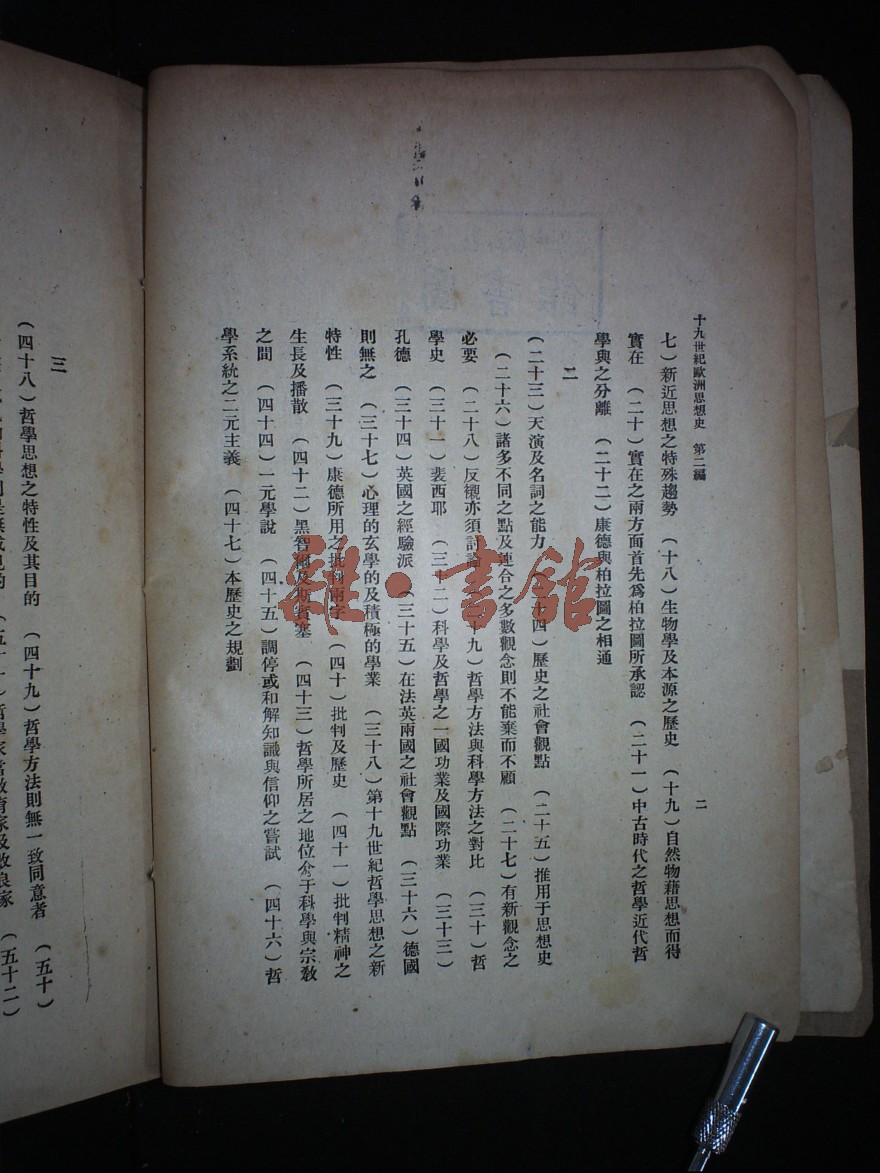 十九世紀歐洲思想史　第二編
二
七）新近思想之特殊趨勢　（十八）生物學及本源之歷史　（十九）自然物藉思想而得
實在　（二十）實在之兩方面首先爲柏拉圖所承認　（二十一）中古時代之哲學近代哲
學與之分離　（二十二）康德與柏拉圖之相通
二
（二十三）天演及名詞之能力　十四）歷史之社會觀點　（二十五）推用于思想史
（二十六）諸多不同之點及連合之多數觀念則不能棄而不顧　（二十七）有新觀念之
必要　（二十八）反襯亦須討論　十九）哲學方法與科學方法之對比　（三十）哲
學史　（三十一）裴西耶　（三十二）科學及哲學之一國功業及國際功業　（三十三）
孔德　（三十四）英國之經驗派　（三十五）在法英兩國之社會觀點　（三十六）德國
則無之　（三十七）心理的玄學的及積極的學業　（三十八）第十九世紀哲學思想之新
特性　（三十九）康德所用之批判兩字　（四十）批判及歷史　（四十一）批判精神之
生長及播散　（四十二）黑智爾及斯賓塞　（四十三）哲學所居之地位介于科學與宗教
之間　（四十四）一元學說　（四十五）調停或和解知識與信仰之嘗試　（四十六）哲
學系統之二元主義　（四十七）本歷史之規劃
三
（四十八）哲學思想之特性及其目的　（四十九）哲學方法則無一致同意者　（五十）
（五十二）
雜·書館